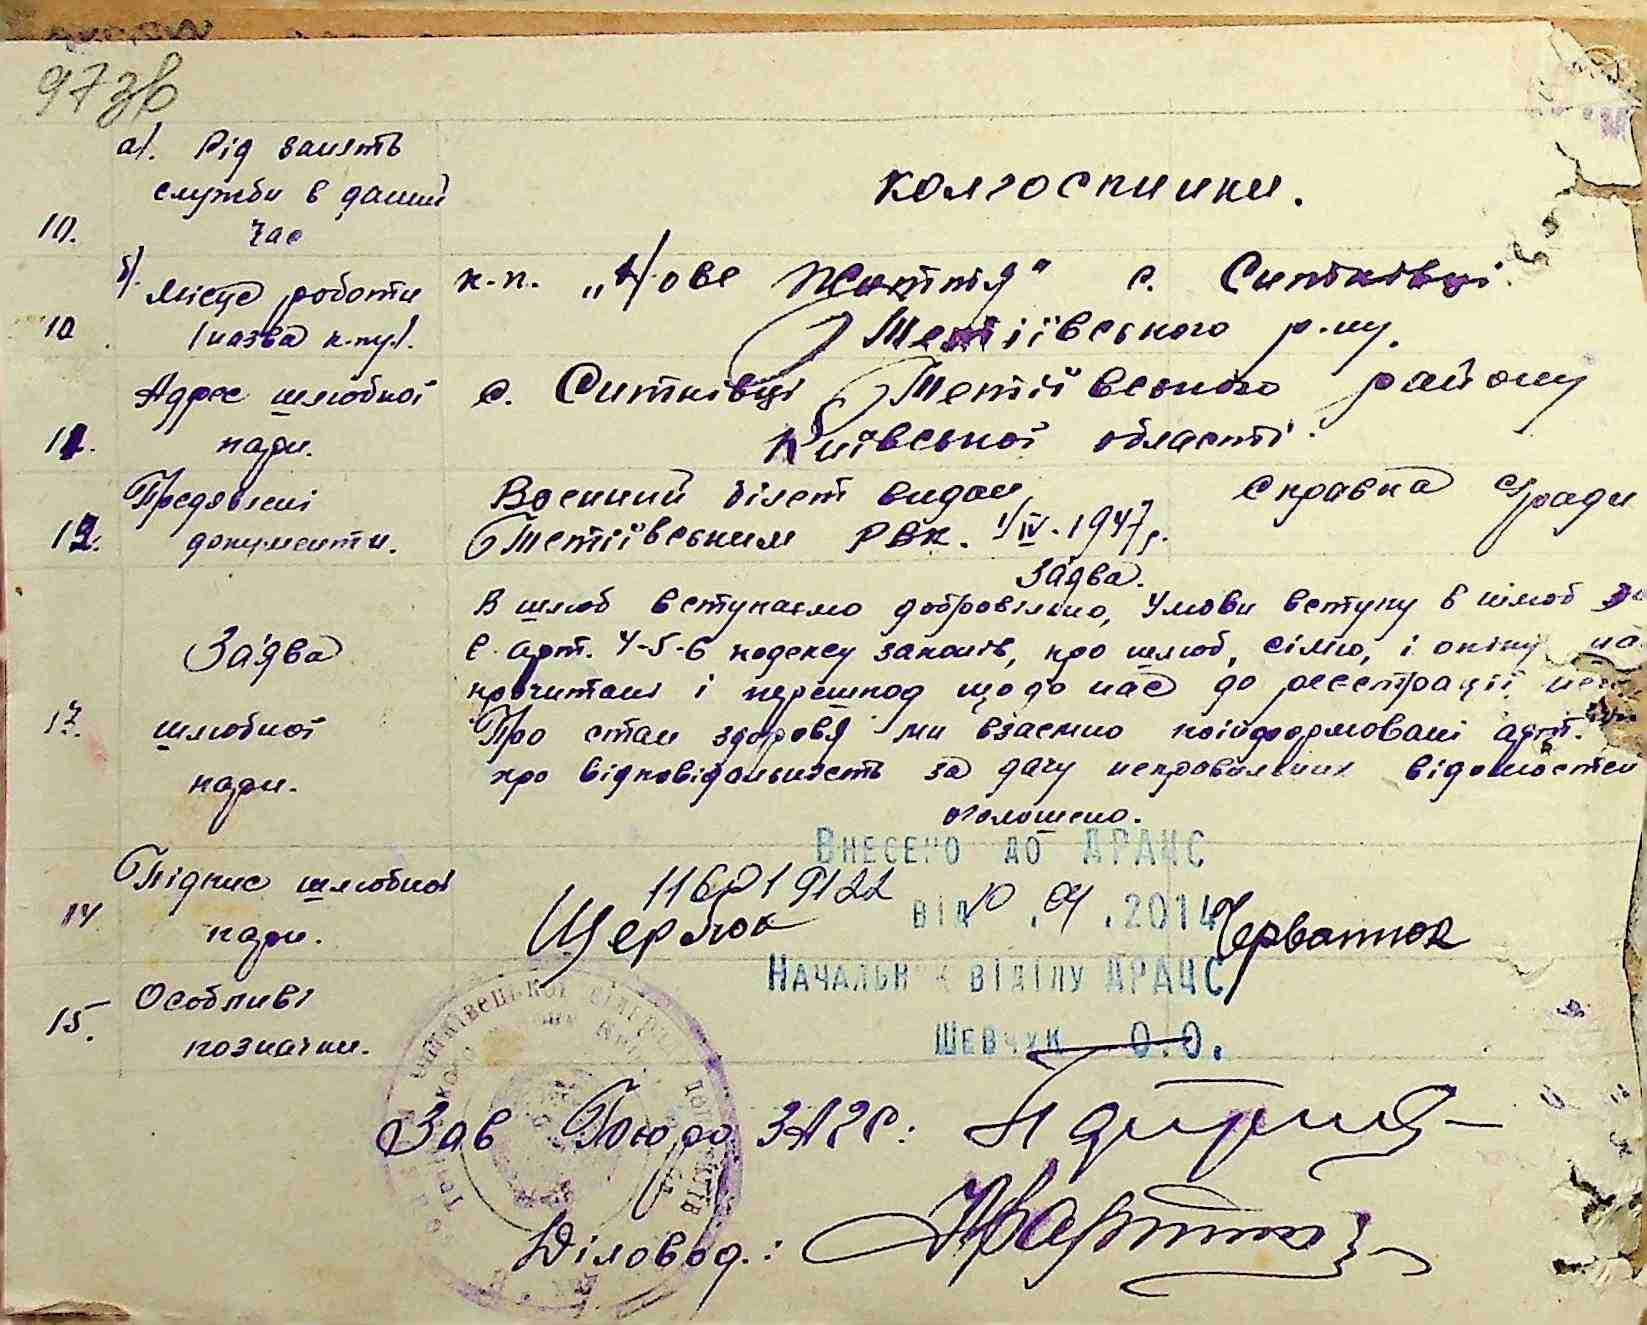 97зв
а). Рід занять
служби в даний
10. час
колгоспники.
б). Місце роботи
10. (назва к-пу).
к-п. „Нове Життя" с. Ситківці
Тетіївського р-ну.
11. Адрес шлюбної
пари.
с. Ситківці Тетіївського району
Київської області.
12. Предявлені
документи.
Воєнний білет видан
Тетіївським РВК. 1/IV-1947р.
Справка с/ради
13. Заява
шлюбної
пари.
Заява.
В шлюб вступаємо добровільно, Умови вступу в шлюб
є арт. 4-5-6 кодексу законів, про шлюб, сімю, і опіку
прочитані і перешкод щодо нас до реєстрації
Про стан здоровя ми взаємно поінформовані арт.
про відповідальність за дачу неправильних відомостей
оголошено.
14. Підпис шлюбної
пари.
Щербюк
Черватюк
Внесено до ДРАЦС
від .04.2014
Начальник відділу ДРАЦС
Шевчук О.О.
15. Особливі
позначки.
Зав Бюро ЗАГС:
Діловод.: